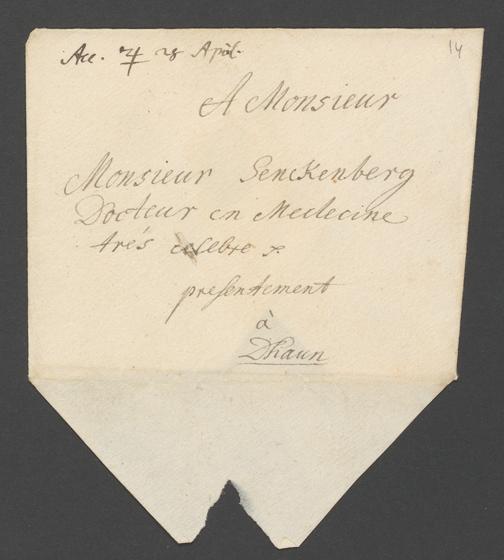 Acc. ♃ 28 April.
14
A Monsieur
Monsieur Senckenberg
Docteur en Medecine
trés celebre
presentement
à
Dhaun